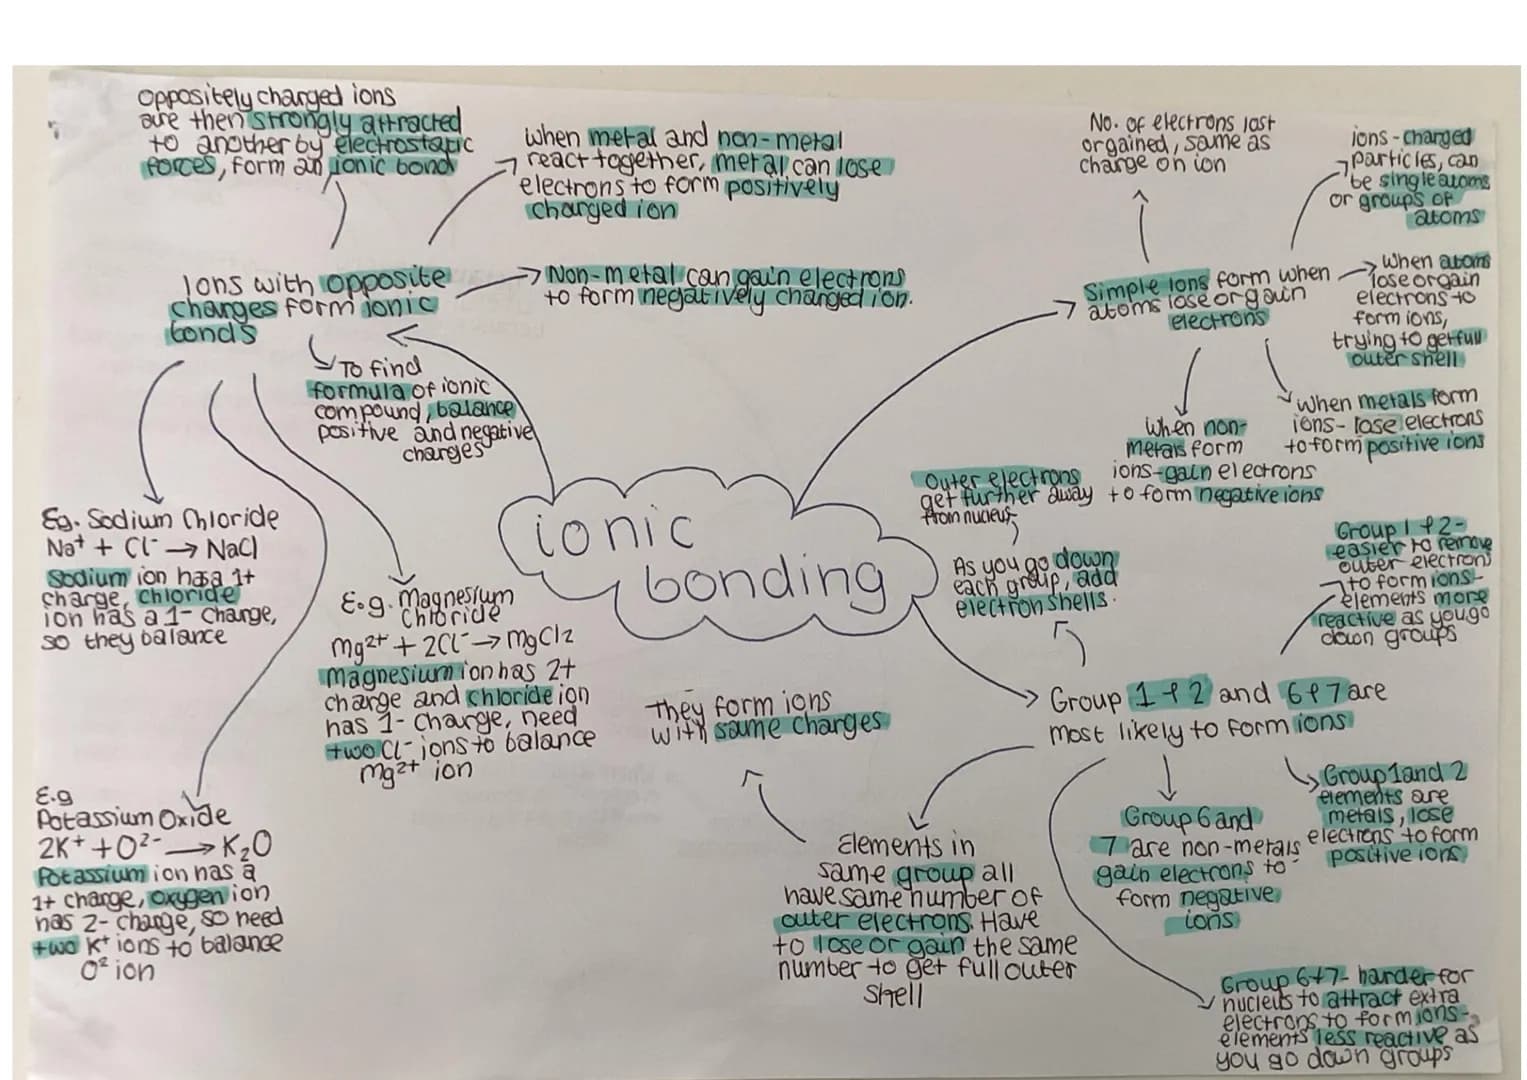 ionic
bonding
Ions with opposite
charges form ionic
bonds
Oppositely charged ions
are then strongly attracted
to another by electrostatic
forces, form an ionic bond
when metal and non-metal
react together, metal can lose
electrons to form positively
charged ion
Non-metal can gain electrons
to form negatively charged ion.
To find
formula of ionic
compound, balance
positive and negative
charges
Eg. Sodium Chloride
Na⁺ + Cl⁻ → NaCl
Sodium ion has a 1+
charge, chloride
ion has a 1- charge,
so they balance
E.g. Magnesium
Chloride
Mg²⁺ + 2Cl⁻ → MgCl2
Magnesium ion has 2+
charge and chloride ion
has 1- charge, need
two Cl⁻ ions to balance
Mg²⁺ ion
E.g
Potassium Oxide
2K⁺ + O²⁻ → K₂O
Potassium ion has a
1+ charge, oxygen ion
has 2- charge, so need
two K⁺ ions to balance
O² ion
Simple Ions form when
atoms lose or gain
electrons
No. of electrons lost
or gained, same as
charge on ion
ions - charged
particles, can
be single atoms
or groups of
atoms
When atoms
lose or gain
electrons to
form ions,
trying to get full
outer shell
When metals form
ions - lose electrons
to form positive ions
When non-
metals form
ions - gain electrons
to form negative ions
Group 1 + 2 and 6 + 7 are
most likely to form ions
As you go down
each group, add
electron shells.
Outer electrons
get further away
from nucleus
Group 1 + 2 -
easier to remove
outer electrons
to form ions -
elements more
reactive as you go
down groups
Group 1 and 2
elements are
metals, lose
electrons to form
positive ions
Group 6 and
7 are non-metals
gain electrons to
form negative
ions
Group 6+7 - harder for
nucleus to attract extra
electrons to form ions -
elements less reactive as
you go down groups
Elements in
same group all
have same number of
outer electrons. Have
to lose or gain the same
number to get full outer
shell
They form ions
with same charges